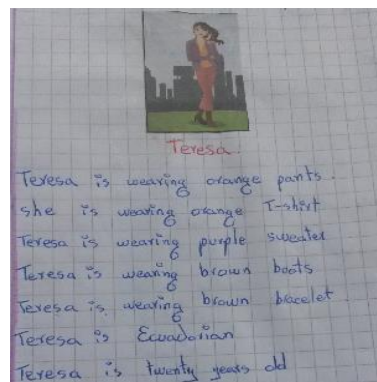 Teresa
Teresa is wearing orange pants.
she is wearing orange T-shirt
Teresa is wearing purple sweater
Teresa is wearing brown boots
Teresa is wearing brown bracelet.
Teresa is Ecuadorian
Teresa is twenty years old